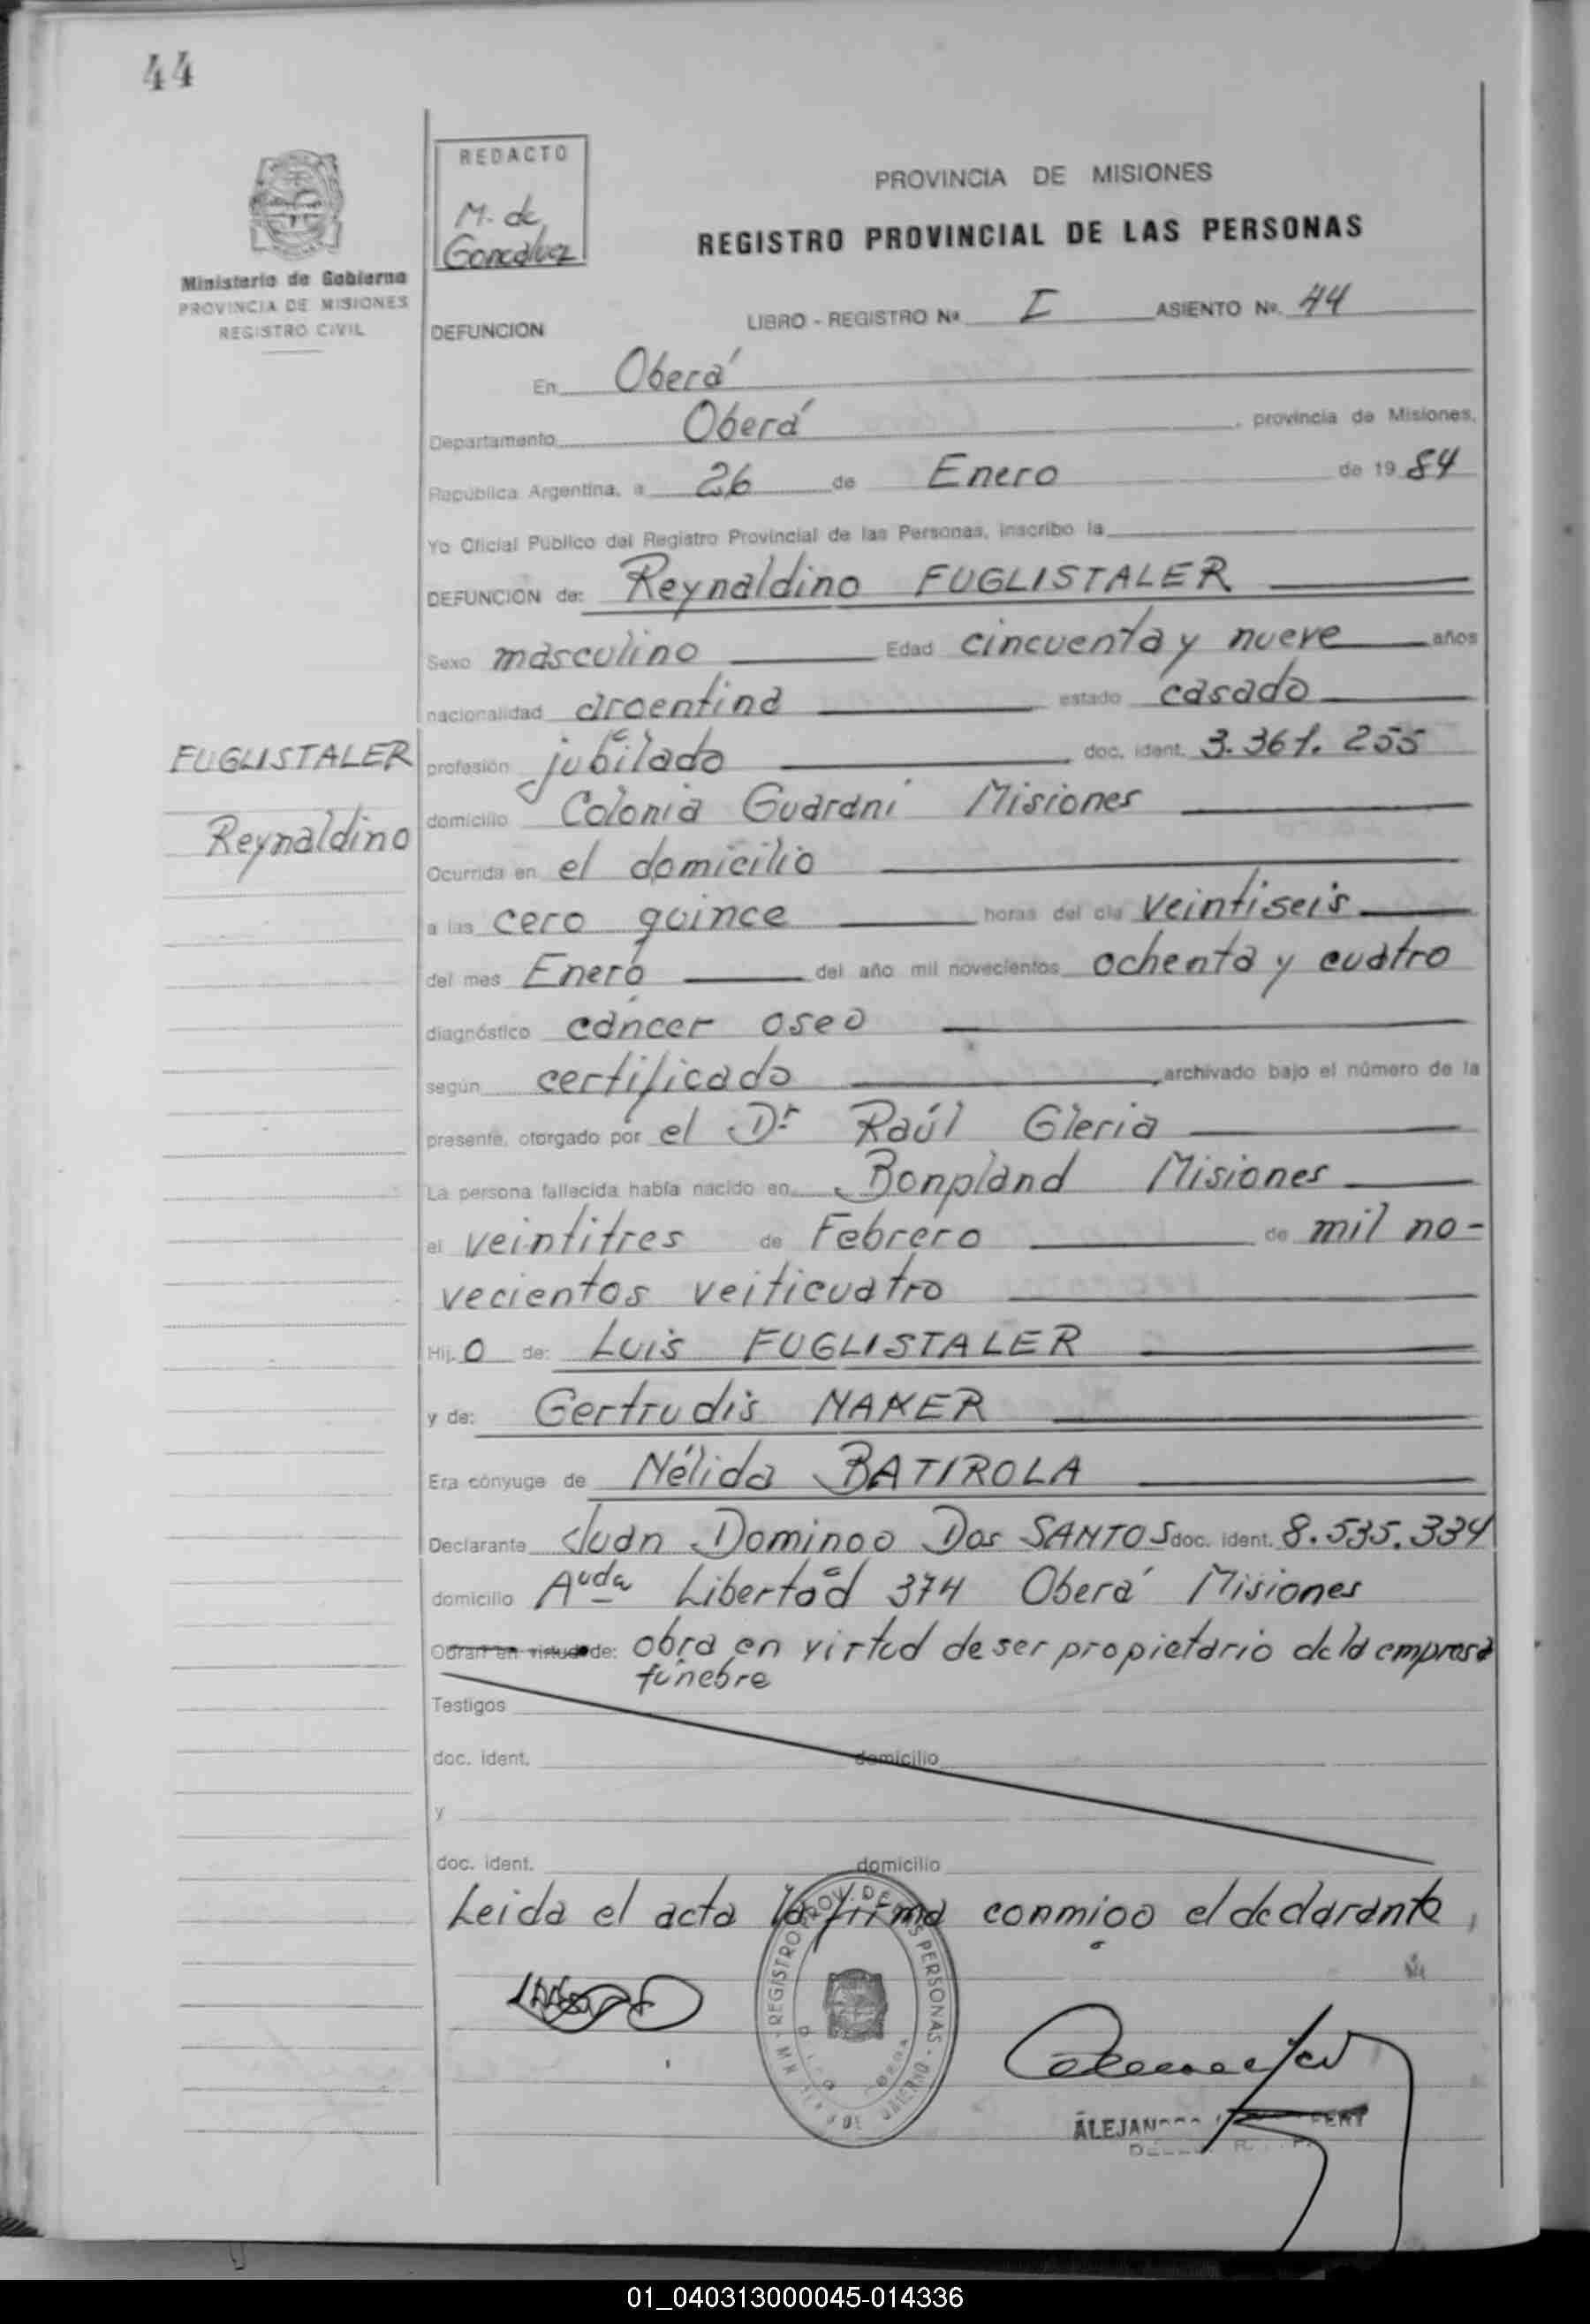 44
REDACTO
M. de
Goncalvez
Ministerio de Gobierno
PROVINCIA DE MISIONES
REGISTRO CIVIL
PROVINCIA DE MISIONES
REGISTRO PROVINCIAL DE LAS PERSONAS
DEFUNCION LIBRO - REGISTRO Nº I ASIENTO Nº. 44
En Oberá
Departamento Oberá, provincia de Misiones,
República Argentina, a 26 de Enero de 1984
Yo Oficial Público del Registro Provincial de las Personas, inscribo la
DEFUNCION de: Reynaldino FUGLISTALER
Sexo masculino Edad cincuenta y nueve años
nacionalidad argentina estado casado
FUGLISTALER
Reynaldino
profesión jubilado doc. ident. 3.361.255
domicilio Colonia Guaraní Misiones
Ocurrida en el domicilio
a las cero quince horas del día veintiseis
del mes Enero del año mil novecientos ochenta y cuatro
diagnóstico cáncer oseo
según certificado, archivado bajo el número de la
presente, otorgado por el Dr Raúl Gleria
La persona fallecida había nacido en Bonpland Misiones
el veintitres de Febrero de mil no-
vecientos veiticuatro
Hij o de: Luis FUGLISTALER
y de: Gertrudis
Era cónyuge de Nélida BATIROLA
Declarante Juan Domingo Dos SANTOS doc. ident. 8.535.334
domicilio Avda Libertad 374 Oberá Misiones
Obran en virtud de: obra en virtud de ser propietario de la empresa
fúnebre
Testigos
doc. ident. domicilio
y
doc. ident. domicilio
Leida el acta la firma conmigo el declarante,
REGISTRO PROV. DE LAS PERSONAS
01_040313000045-014336